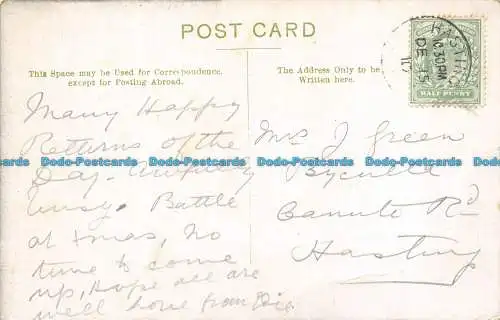 POST CARD
This Space may be Used for Correspondence,
except for Posting Abroad.
The Address Only to be
Written here.
HASTINGS
10.30 PM
DE
HALF PENNY
Many Happy
Returns of the
Day.
busy. Battle
at Xmas, No
time to come
up, Hope all are
well love from
Mrs J Green
Canute Rd
Hastings
Dodo-Postcards Dodo-Postcards Dodo-Postcards Dodo-Postcards
Dodo-Postcards Dodo-Postcards Dodo-Postcards Dodo-Postcards